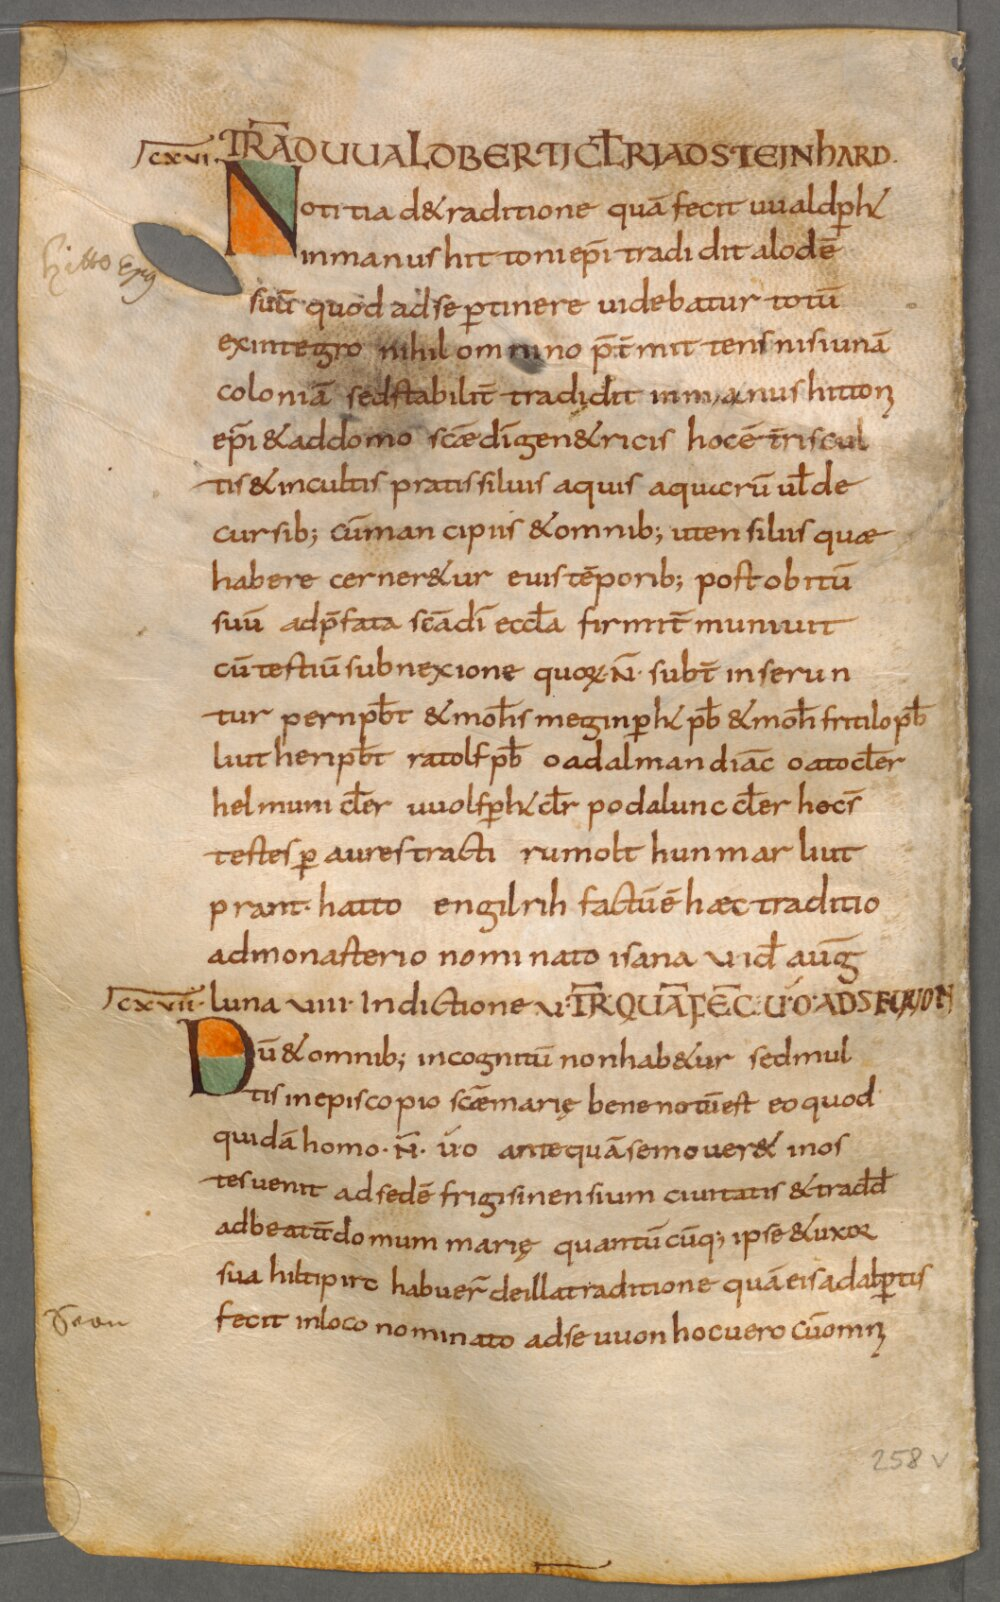 CXVI. TRAD UUALDBERTI CLRI AD STEINHARD.
Notitia d&raditione quā fecit uualdꝑh̄
inmanus hittoni ep̄i tradidit alodē
hitto Ep̄s
suū quod adse ꝑtinere uidebatur totū
exintegro nihil omnino p̄t̄mittens nisi unā
coloniā sed stabilit̄ tradidit inmanus hittonꝫ
ep̄i & addomo scǣ dī gen&ricis hocē t̄ris cul
tis & incultis pratis siluis aquis aquarū ul̄ de
cursib; cū mancipiis & omnib; utensiliis quæ
habere cerner&ur euis tēporib; post obitū
suū adp̄fata scā dī eccl̄a firmit̄ muniuit
cū testiū subnexione quoꝝ · N̄ · subt̄ inserun
tur pern pb̄t & moh̄is meginꝑh̄ pb̄ & moh̄i fritilo pb̄
liutheri pb̄t ratolf pb̄ oadalman diac̄ oato cl̄er
helmuni cl̄er uuolfꝑh̄ cl̄r podalunc cl̄er hoc s̄
testes ꝑ aures tracti rumolt hunmar liut
prant · hatto engilrih factū ē hæc traditio
admonasterio nominato isana u id̄ auḡ
CXVII · luna uiiii · Indictione u · TR̄ QUĀ FEC̄ U̇O ADSEUUON
Dū & omnib; incognitū nonhab&ur sedmul
tis inepiscopio scǣ marię bene notū est eo quod
quidā homo · N̄ · u̇o antequā se mouer& inos
tes uenit adsedē frigisinensium ciuitatis & tradd̄
adbeatū domum marię quantū cūq; ipse & uxor
sua hiltipirc habuer̄ deilla traditione quā eis adalꝑtis
Seon
fecit inloco nominato adseuuon hoc uero cū omnꝫ
258 v